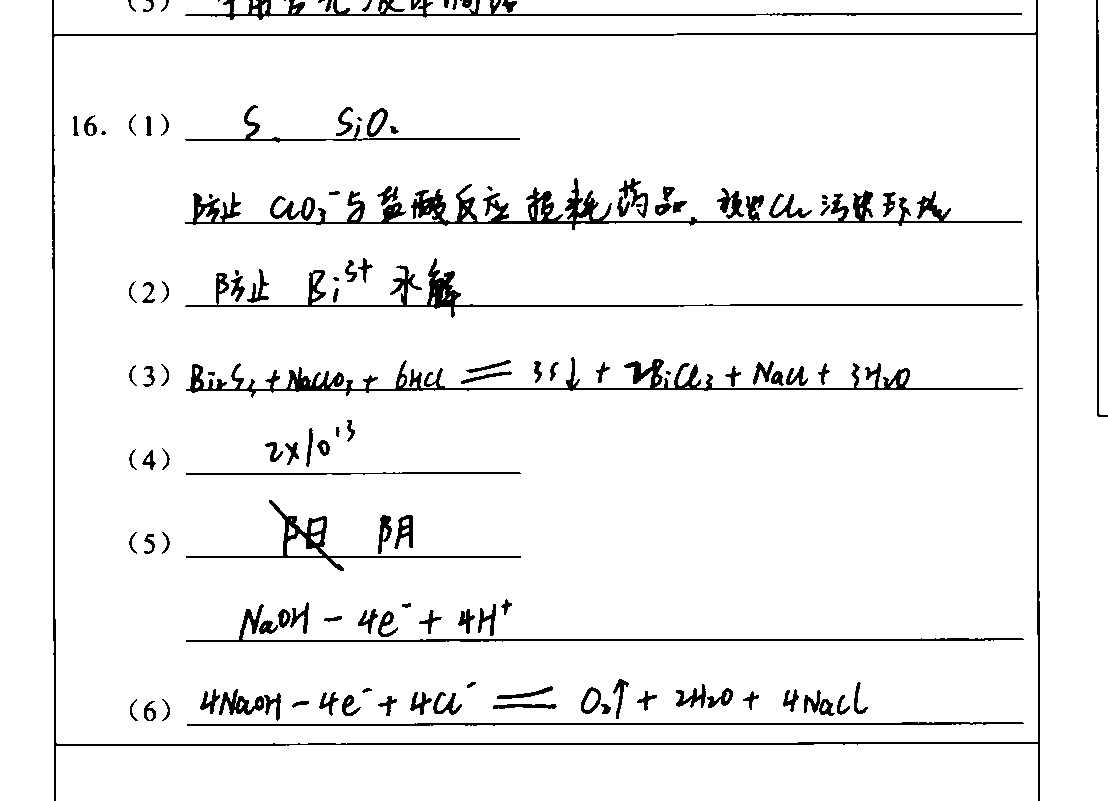 16. (1) S、 SiO₂
防止 ClO₃⁻与盐酸反应损耗药品, Cl₂污染环境
(2) 防止 Bi³⁺ 水解
(3) Bi₂S₃ + NaClO₃ + 6HCl = 3S↓ + 2BiCl₃ + NaCl + 3H₂O
(4) 2×10¹³
(5) 阴
NaOH - 4e⁻ + 4H⁺
(6) 4NaOH - 4e⁻ + 4Cl⁻ = O₂↑ + 2H₂O + 4NaCl